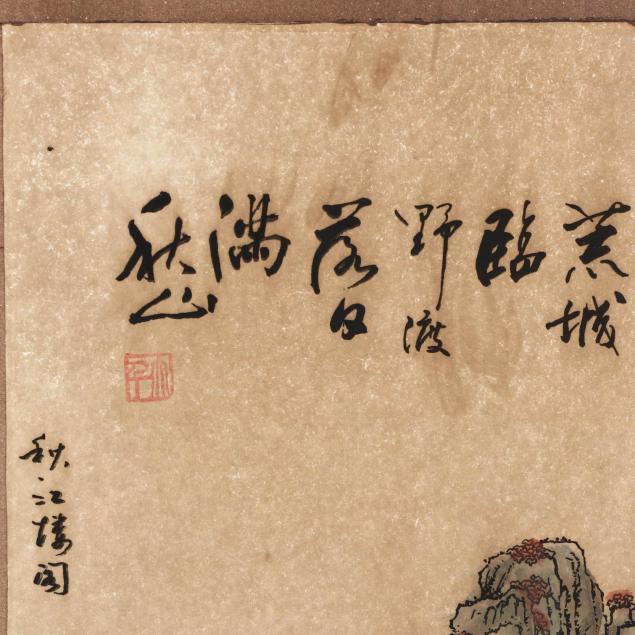 荒城
臨
野渡
落日
滿
秋山
秋江樓閣